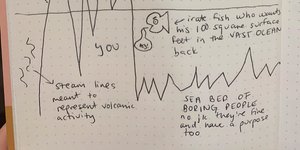 irate fish who wants
his 100 square surface
feet in the VAST OCEAN
back
YOU
steam lines
meant to
represent volcanic
activity
SEA BED OF
BORING PEOPLE
no jk they're fine
and have a purpose
too